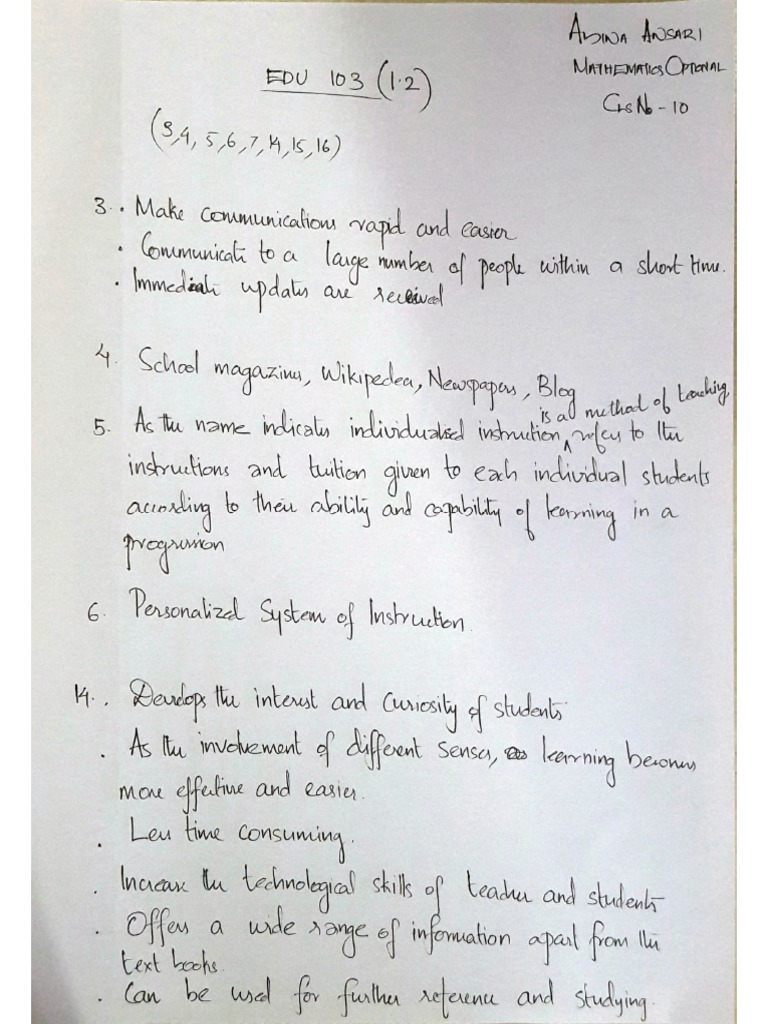 Abina Ansari
Mathematics Optional
EDU 103 (1.2)
Cls No - 10
(3,4, 5,6,7,14,15,16)
3. • Make communications rapid and easier
• Communicate to a large number of people within a short time.
• Immediate updates are received
4. School magazines, Wikipedea, Newspapers, Blog
is a method of teaching,
5. As the name indicates individualised instruction, refers to the
instructions and tuition given to each individual students
according to their ability and capability of learning in a
progression
6. Personalized System of Instruction.
14. • Develops the interest and curiosity of students
• As the involvement of different senses, learning becomes
more effective and easier.
• Less time consuming.
• Increase the technological skills of teacher and students
• Offers a wide range of information apart from the
text books.
• Can be used for further reference and studying.